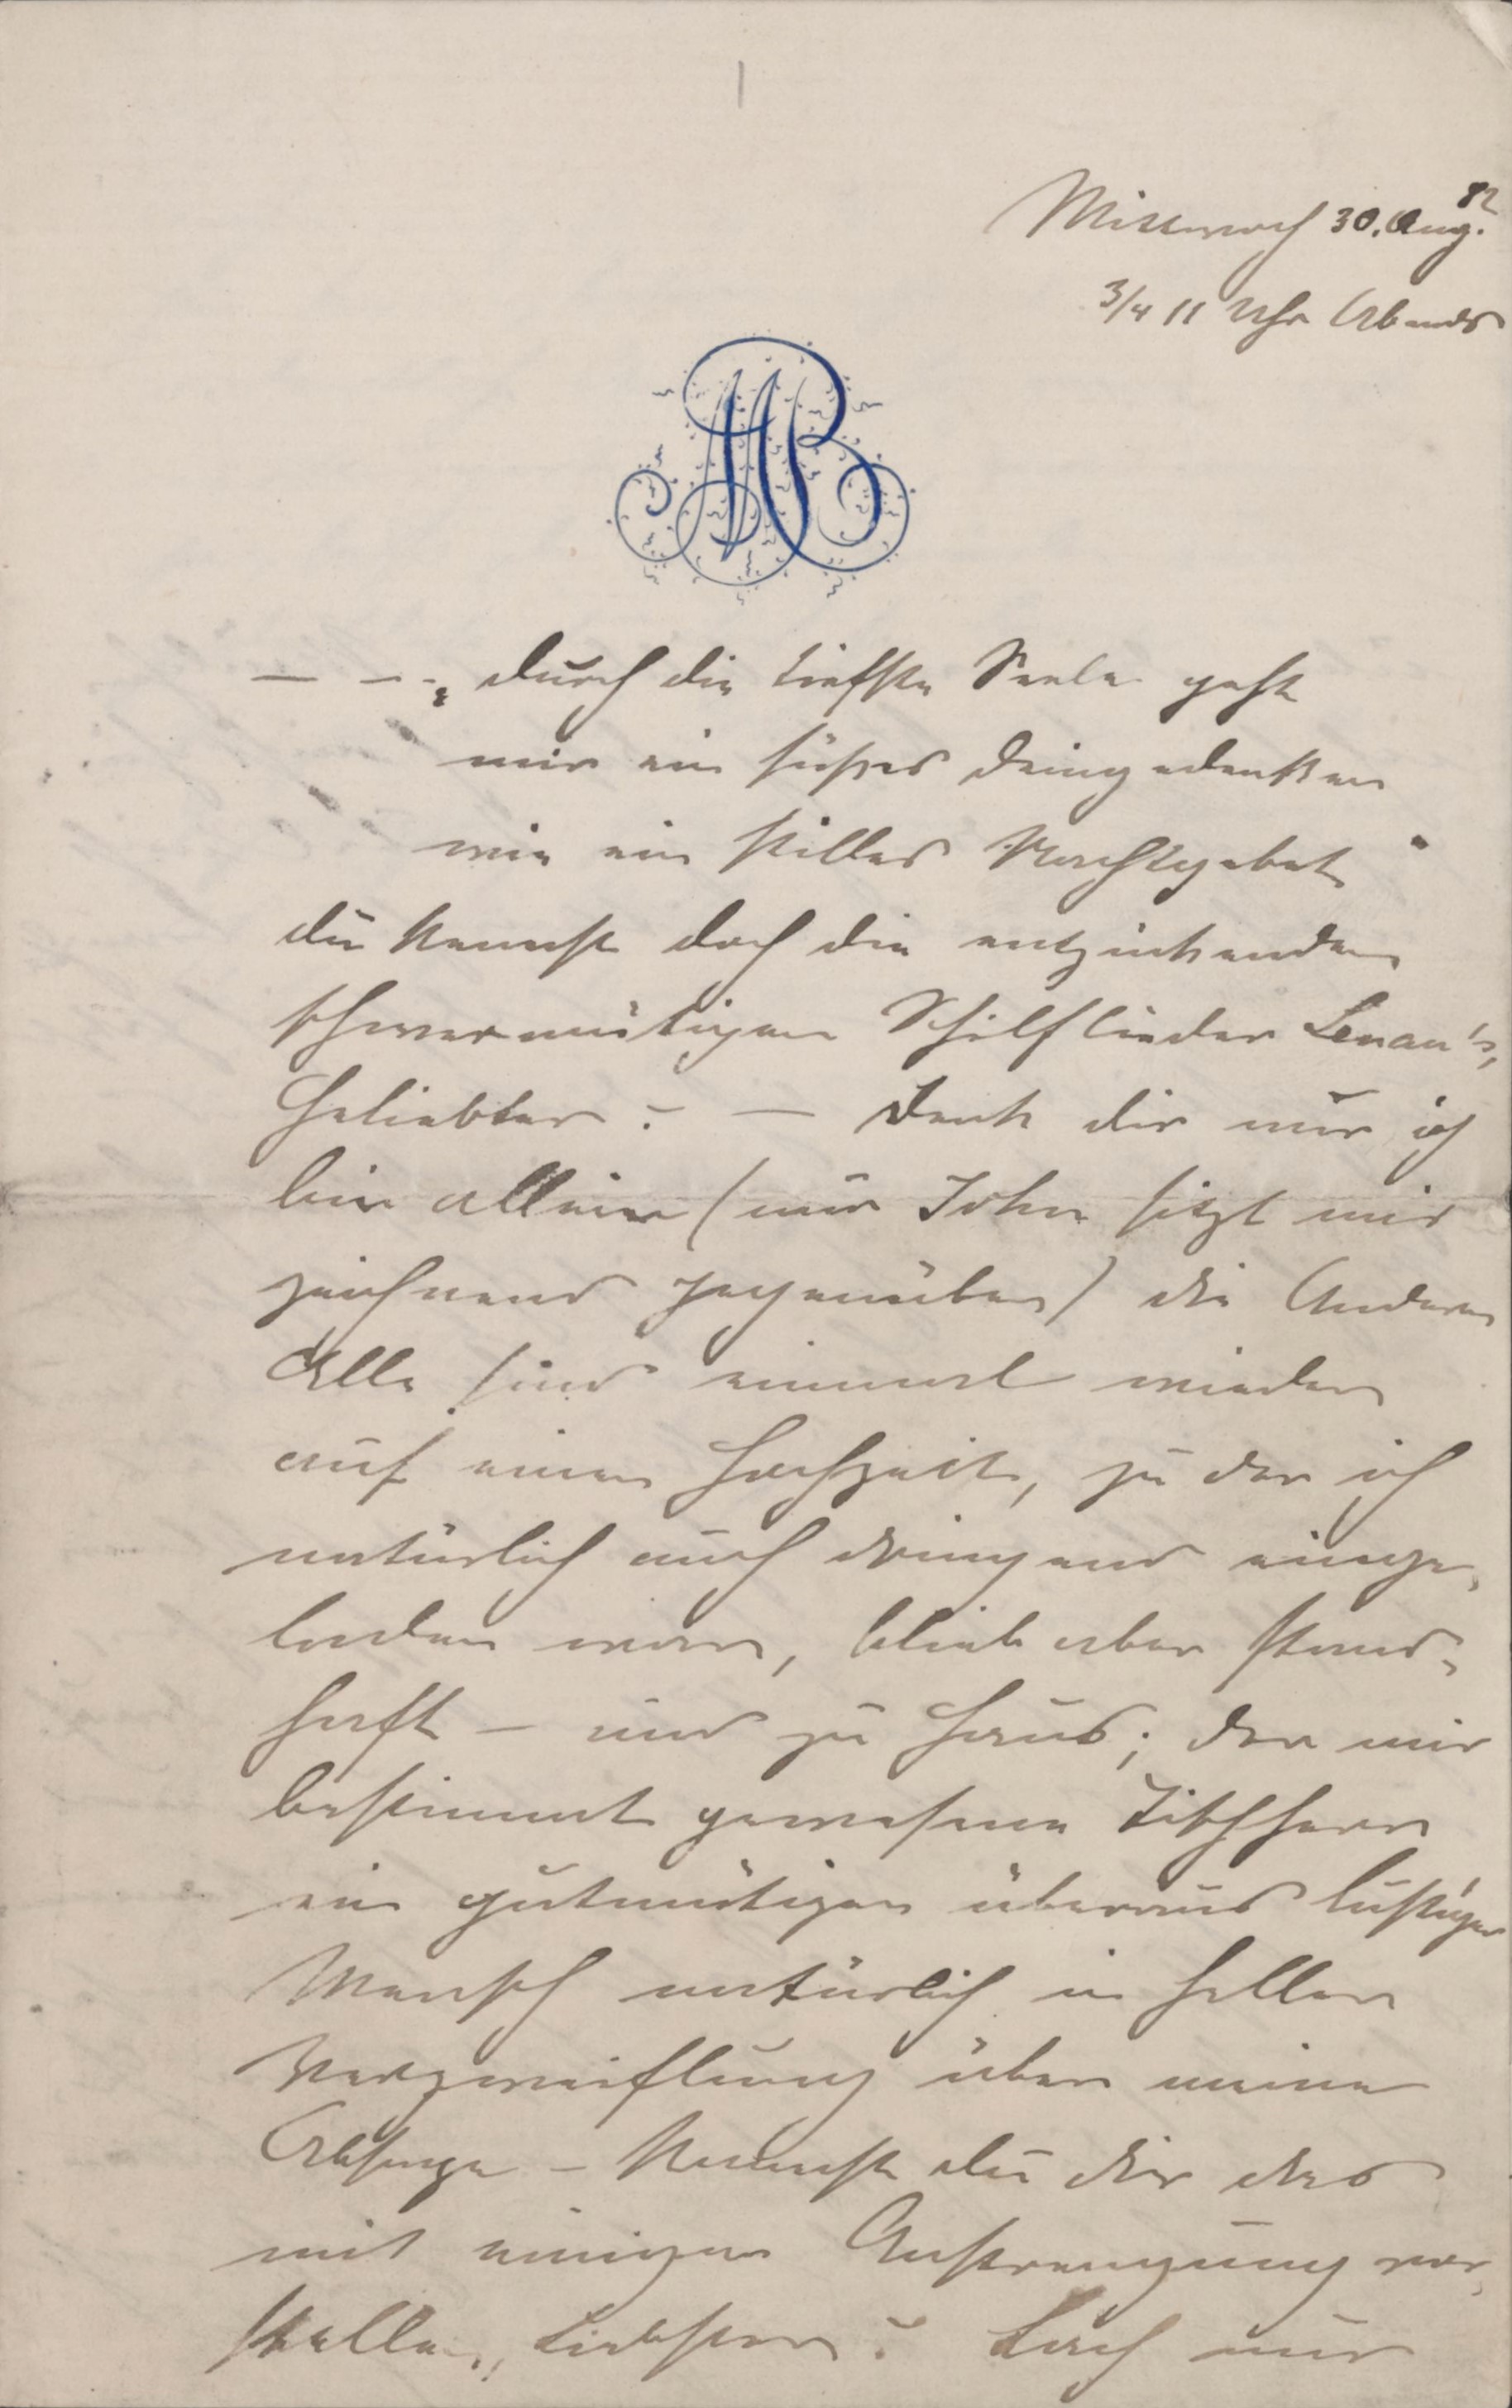 Mittwoch 30. Aug. 82
3/4 11 Uhr Abends
MB
— – „ durch die tiefste Seele geht
mir ein süßes Deingedenken
wie ein stilles Nachtgebet “
du kennst doch die entzückenden
schwermütigen Schilflieder Lenau's,
Geliebter? — Denk dir nur ich
bin allein (nur John sitzt mir
zeichnend gegenüber) die Anderen
Alle sind einmal wieder
auf einer Hochzeit, zu der ich
natürlich auch dringend einge-
laden war, blieb aber stand-
haft – und zu Haus; der mir
bestimmt gewesene Tischherr
ein gutmütiger überaus lustiger
Mensch natürlich in heller
Verzweiflung über meine
Absage – Kannst du dir das
mit einiger Anstrengung vor-
stellen, Liebster? Lach nur